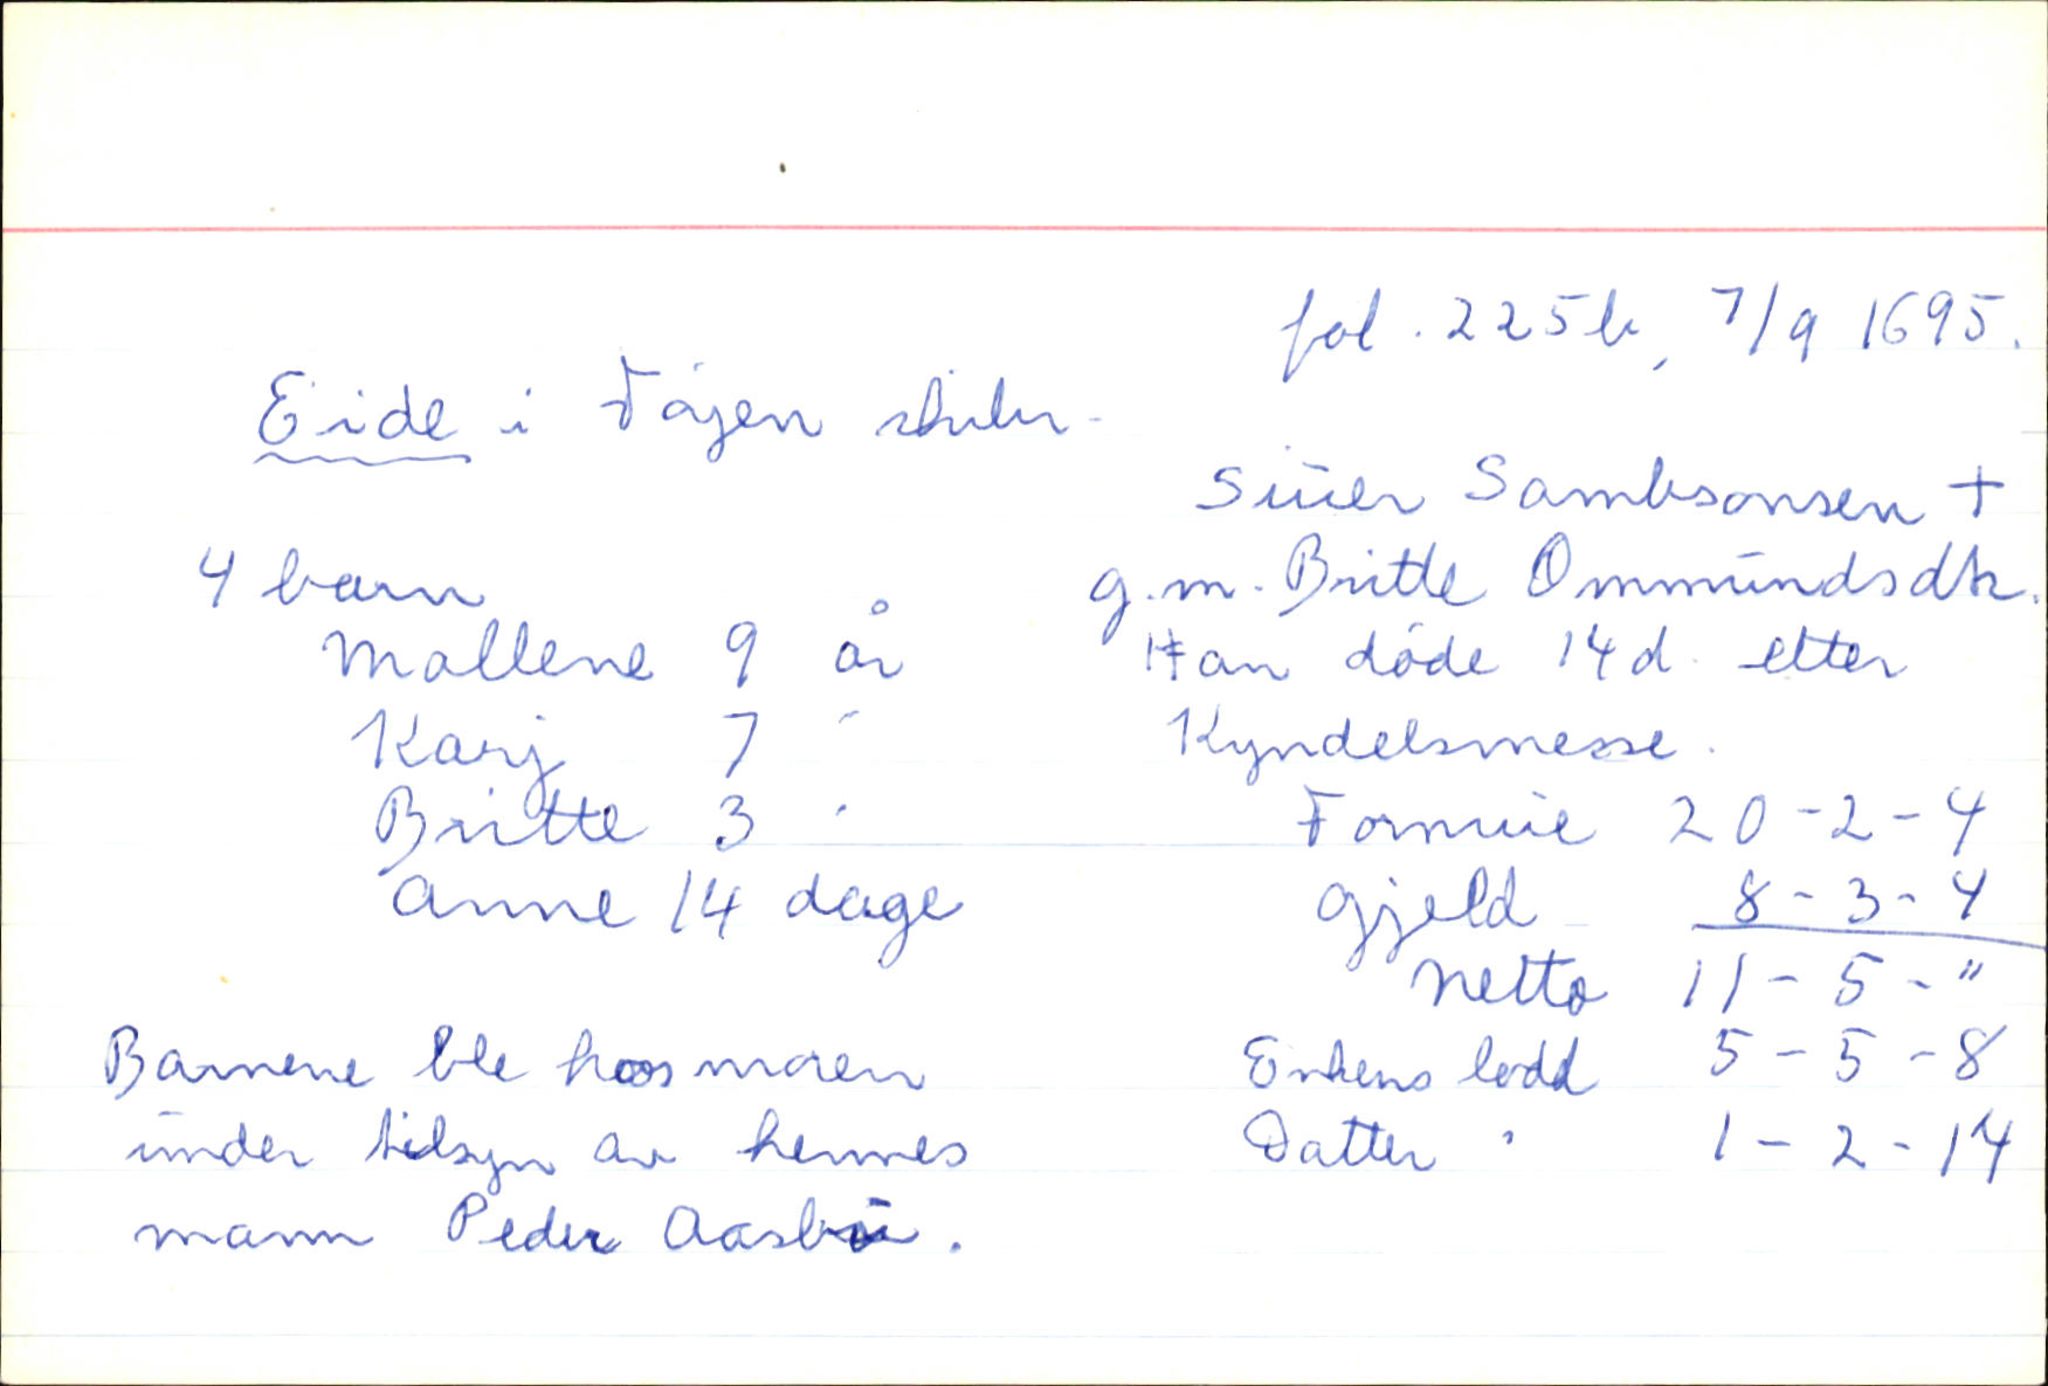 fol. 225b, 7/9 1695.
Eide i Føjen skibr.
Siúer Sambsonsen +
g.m. Britte Ommúndsdtr.
Han døde 14 d. etter
Kyndelsmesse.
4 barn
Mallene 9 år
Karj 7 "
Britte 3 "
Anne 14 dage
Formúe 20-2-4
Gjeld 8-3-4
Netto 11-5-"
Enkens lodd 5-5-8
Datter " 1-2-14
Barnene ble hos moren
únder tilsyn av hennes
mann Peder